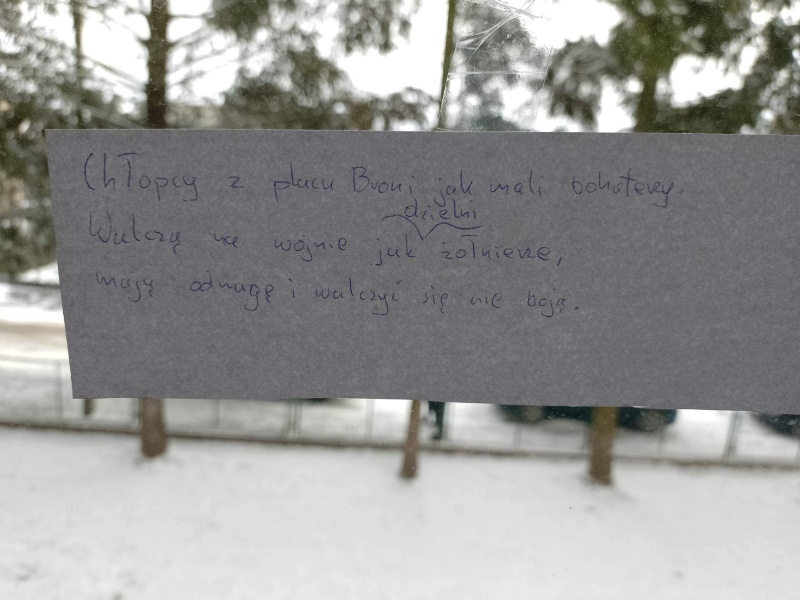 Chłopcy z placu Broni jak mali bohaterzy.
dzielni
Walczą na wojnie jak żołnierze,
mają odwagę i walczyć się nie boją.